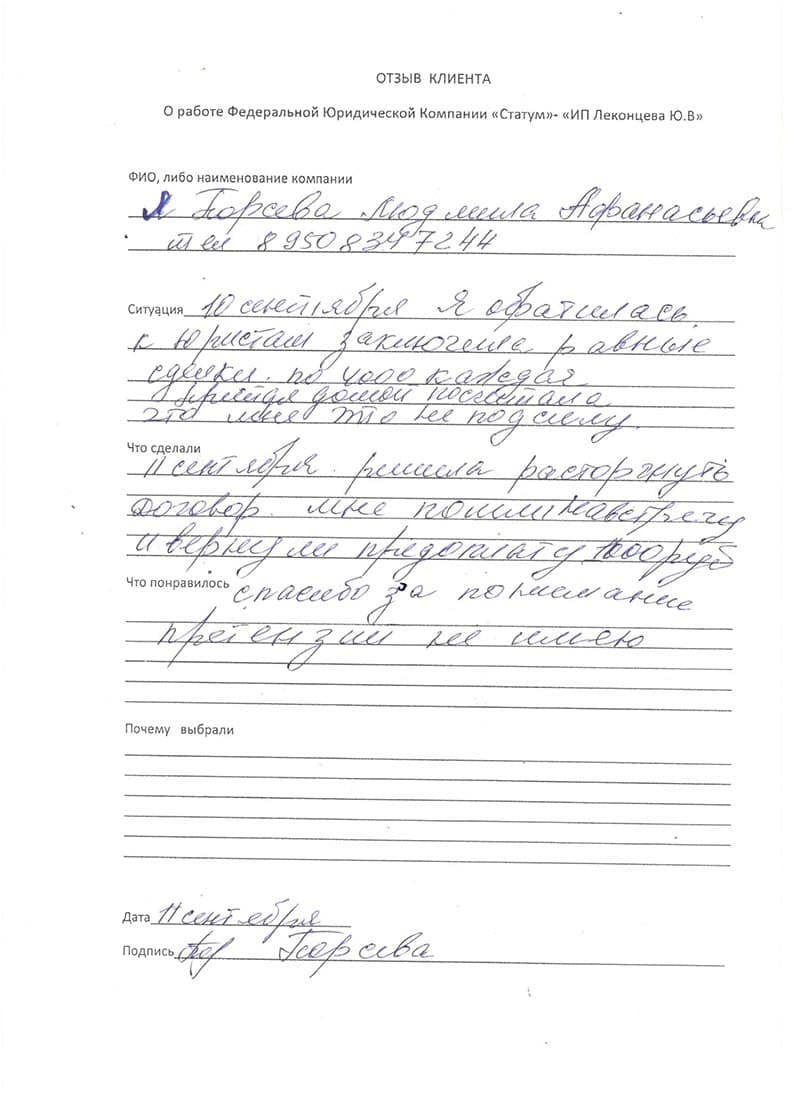 ОТЗЫВ КЛИЕНТА
О работе Федеральной Юридической Компании «Статум»- «ИП Леконцева Ю.В»
ФИО, либо наименование компании
Я Порсева Людмила Афанасьевна
тел 89508347244
Ситуация 10 сентября Я обратилась
к юристам заключила равные
сделки. по 4000 каждая
придя домой посчитала
что мне это не подсилу.
Что сделали
11 сентября решила расторгнуть
договор. мне пошли навстречу
и вернули предоплату 1000 руб
Что понравилось спасибо за понимание
претензии не имею
Почему выбрали
Дата 11 сентября
Подпись Порсева